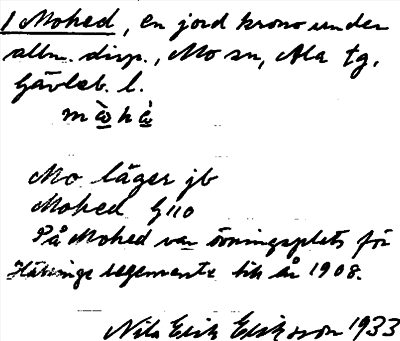 1 Mohed, en jord krono under
allm. disp., Mo sn, Ala tg,
Gävleb. l.
Mo läger jb
Mohed G110
På Mohed var övningsplats för
Hälsinge regemente till år 1908.
Nils Erik Eriksson 1933